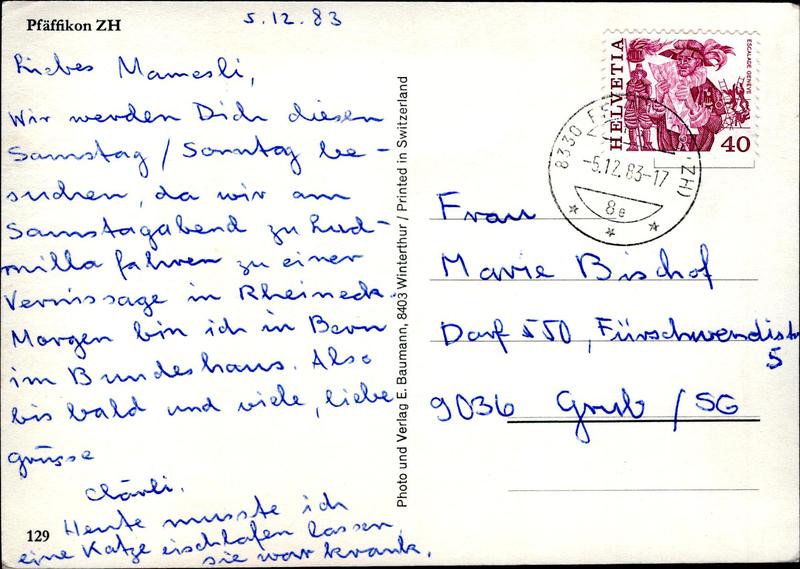 Pfäffikon ZH
5.12.83
Liebes Mamesli,
Wir werden Dich diesen
Samstag/Sonntag be-
suchen, da wir am
Samstagabend zu Lud-
milla fahren zu einer
Vernissage in Rheineck.
Morgen bin ich in Bern
im Bundeshaus. Also
bis bald und viele, liebe
grüsse
Chärli.
Heute musste ich
eine Katze eischlafen lassen,
sie war krank.
129
Photo und Verlag E. Baumann, 8403 Winterthur / Printed in Switzerland
HELVETIA
ESCALADE GENÈVE
40
8330 ZH)
-5.12.83-17
8e
Frau
Marie Bischof
Dorf 550, Fürschwendistr
5
9036 Grub/SG